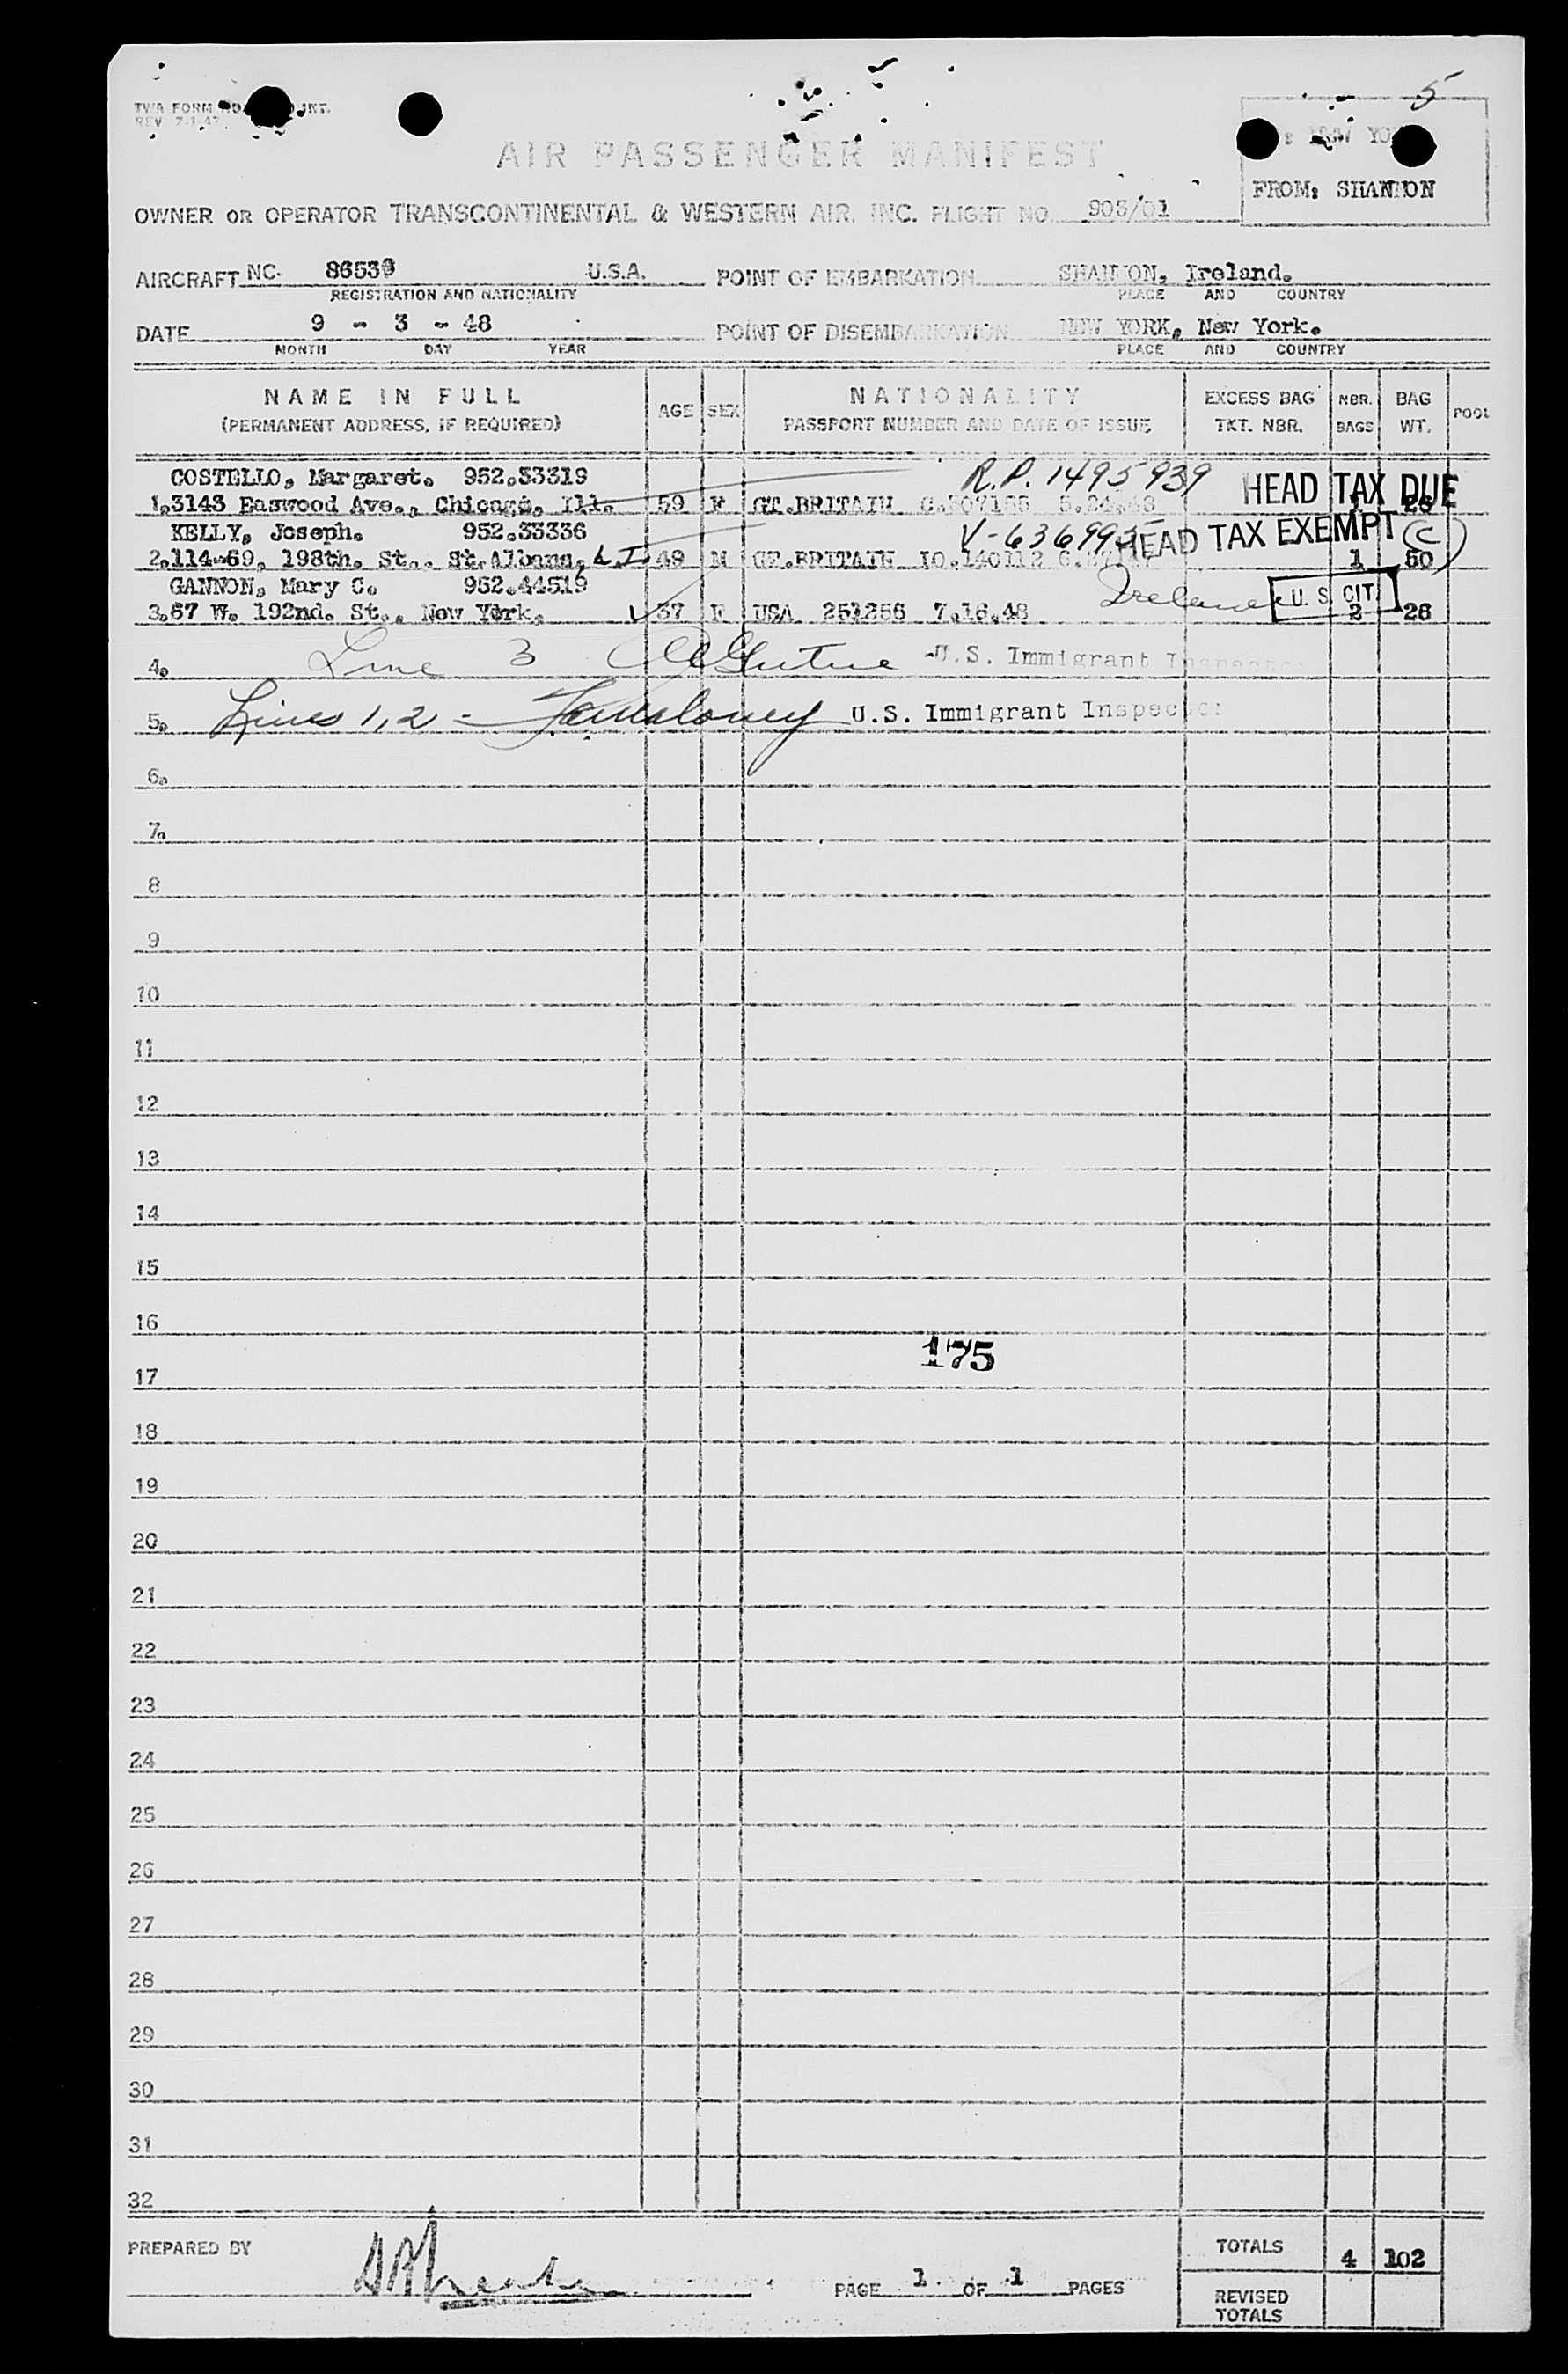 5
TWA FORM
REV. 7-1-47
AIR PASSENGER MANIFEST
FROM: SHANNON
OWNER OR OPERATOR TRANSCONTINENTAL & WESTERN AIR, INC. FLIGHT NO. 905/01
AIRCRAFT NC- 86539 U.S.A. POINT OF EMBARKATION SHANNON, Ireland.
REGISTRATION AND NATIONALITY PLACE AND COUNTRY
DATE 9 - 3 - 48 POINT OF DISEMBARKATION NEW YORK, New York.
MONTH DAY YEAR PLACE AND COUNTRY
NAME IN FULL (PERMANENT ADDRESS, IF REQUIRED) AGE SEX NATIONALITY PASSPORT NUMBER AND DATE OF ISSUE EXCESS BAG TKT. NBR. NBR. BAGS BAG WT. POOL
COSTELLO, Margaret. 952.33319 R.P. 1495939 HEAD TAX DUE
1.3143 Easwood Ave., Chicago, Ill. 59 F GT.BRITAIN
KELLY, Joseph. 952.33336 HEAD TAX EXEMPT (C)
2.114-69, 198th. St., St.Albans, L.I. 49 M GT.BRITAIN 1 50
GANNON, Mary C. 952.44519 Ireland U.S. CIT.
3.67 W. 192nd. St., New York. 37 F USA 251256 7.16.48 2 26
4. Line 3 U.S. Immigrant Inspector
5. Lines 1,2 - U.S. Immigrant Inspector
6.
7.
8
9
10
11
12
13
14
15
16
175
17
18
19
20
21
22
23
24
25
26
27
28
29
30
31
32
PREPARED BY TOTALS 4 102
PAGE 1 OF 1 PAGES
REVISED TOTALS